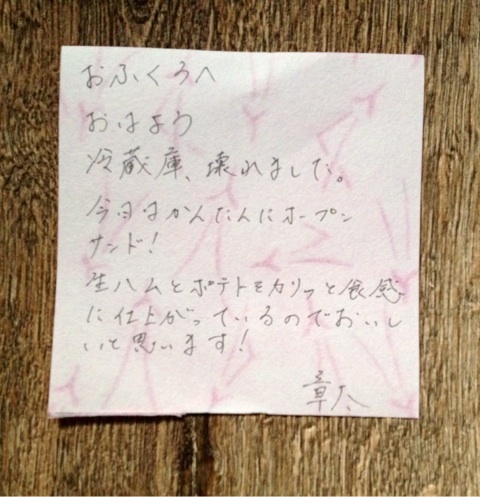 おふくろへ
おはよう
冷蔵庫、壊れました。
今日はかんたんにオープン
サンド!
生ハムとポテトをカリッと食感
に仕上がっているのでおいし
いと思います!
章太